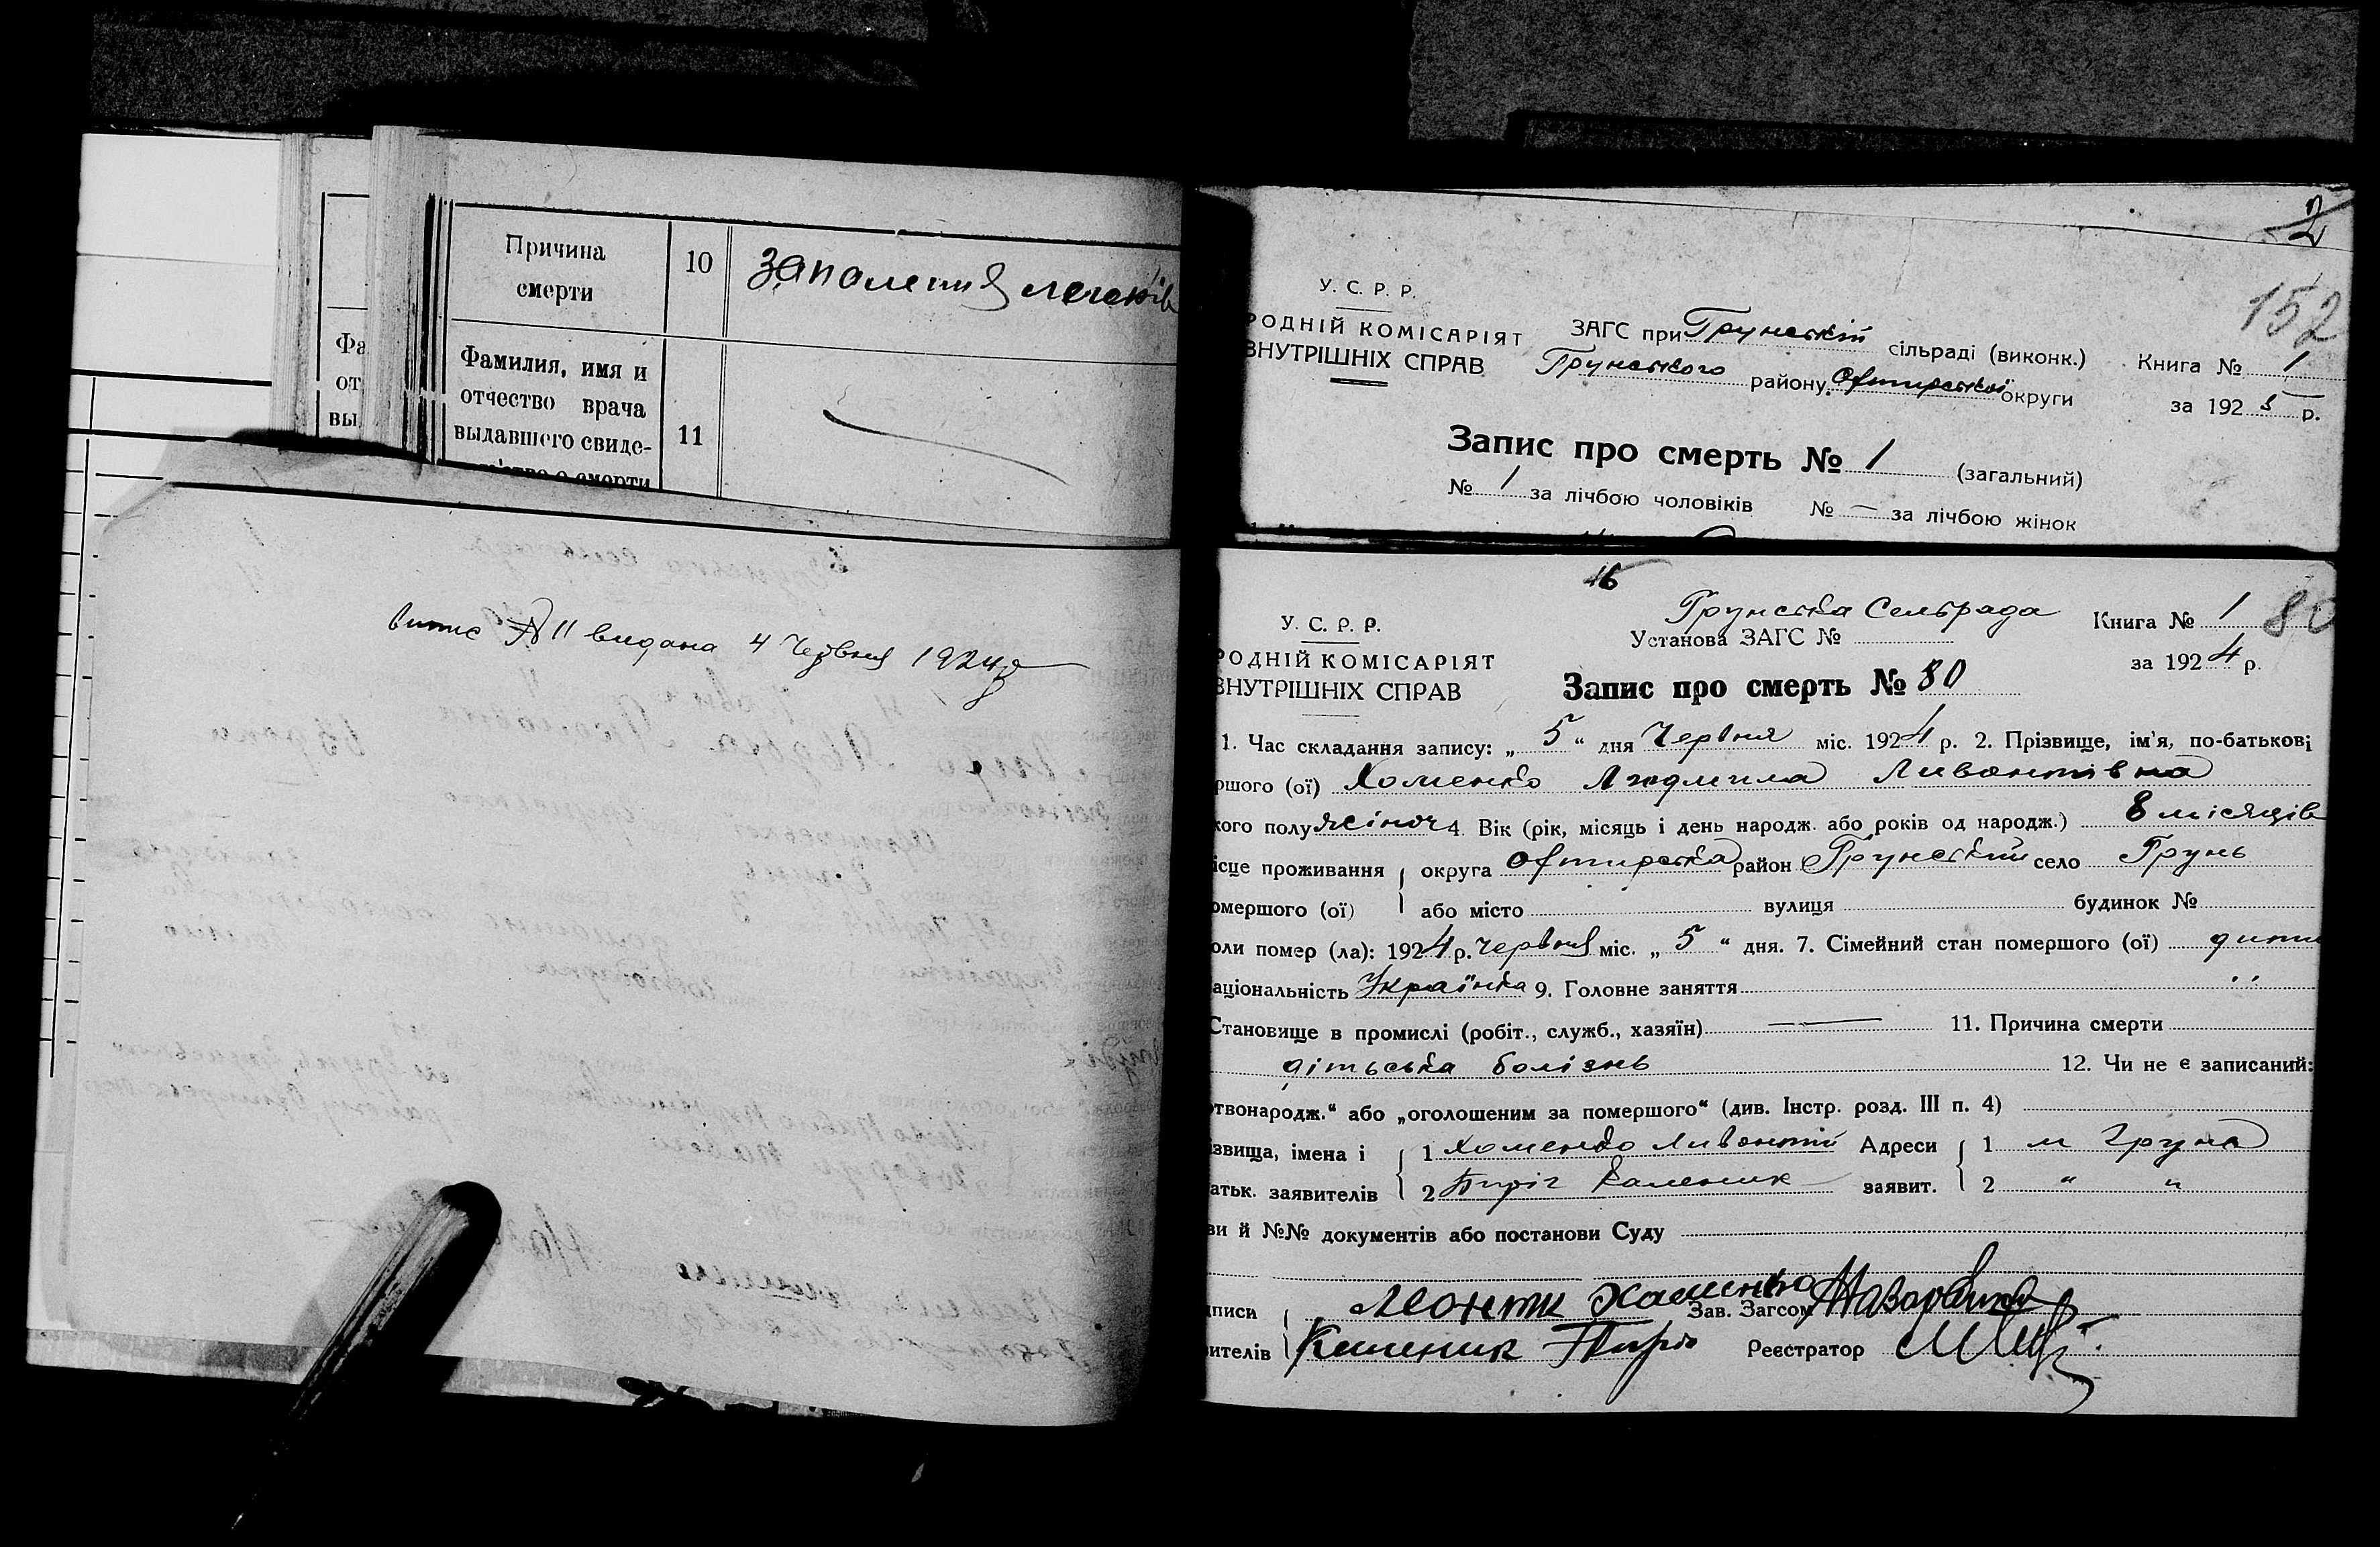 Причина
смерти
10
запаления легенів
Фа
от
вы
Фамилия, имя и
отчество врача
выдавшего свиде-
11
витис № 11 видана 4 Червня 1924 р
2
152
У. С. Р. Р.
РОДНІЙ КОМІСАРІЯТ
ВНУТРІШНІХ СПРАВ
ЗАГС при Грунській сільраді (виконк.)
Грунського району Охтирської округи
Книга № 1
за 1925 р.
Запис про смерть № 1 (загальний)
№ 1 за лічбою чоловіків № — за лічбою жінок
16
У. С. Р. Р.
РОДНІЙ КОМІСАРІЯТ
ВНУТРІШНІХ СПРАВ
Грунська Сельрада
Установа ЗАГС №
Книга № 1
80
за 1924 р.
Запис про смерть № 80
1. Час складання запису: „ 5 “ дня Червня міс. 1924 р. 2. Прізвище, ім'я, по-батькові
ршого (ої) Хоменко Людмила Ливонтівна
кого полу жіноч 4. Вік (рік, місяць і день народж. або років од народж.) 8 місяців
ісце проживання округа Охтирська район Грунський село Грунь
омершого (ої) або місто вулиця будинок №
оли помер (ла): 1924 р. Червня міс. „ 5 “ дня. 7. Сімейний стан помершого (ої) дити
аціональність Українка 9. Головне заняття
Становище в промислі (робіт., служб., хазяїн) — 11. Причина смерти
дітьська болізнь 12. Чи не є записаний:
ртвонародж.“ або „оголошеним за помершого“ (див. Інстр. розд. III п. 4)
звища, імена і 1 Хоменко Ливонтій Адреси 1 м Груня
атьк. заявителів 2 Пиріг Каленик заявит. 2 " "
ви й №№ документів або постанови Суду
дписи Леонтк Хоменко Зав. Загсом
вителів Каленик Пиріг Реєстратор